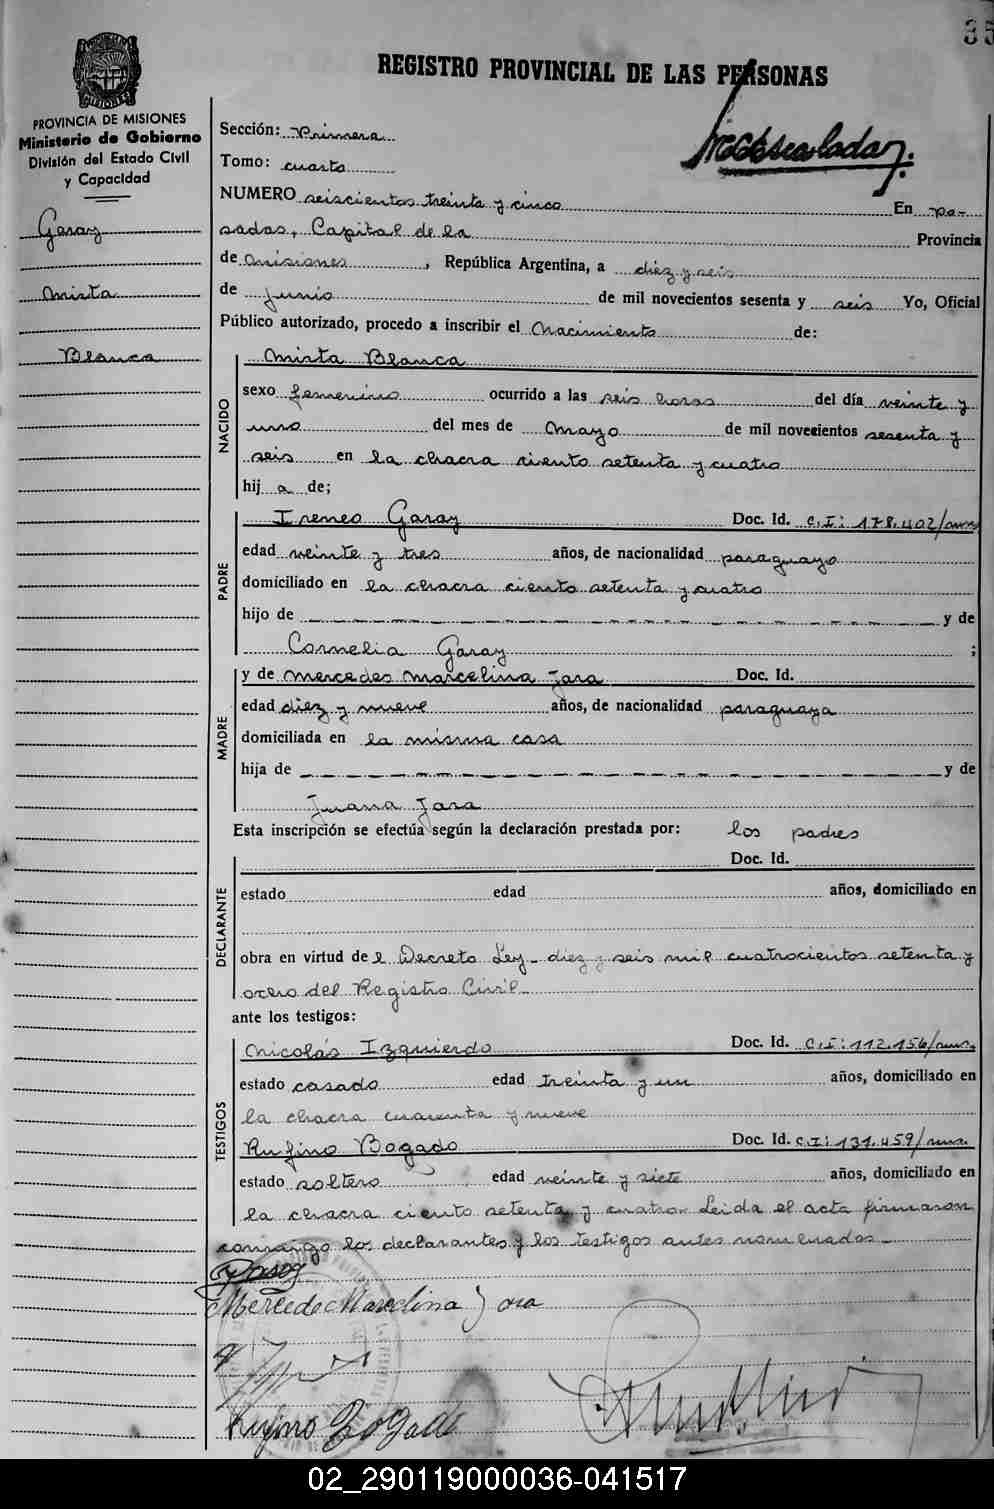 35
REGISTRO PROVINCIAL DE LAS PERSONAS
PROVINCIA DE MISIONES
Ministerio de Gobierno
División del Estado Civil
y Capacidad
Garay
Mirta
Blanca
Sección: Primera
Tomo: cuarto
NUMERO seiscientos treinta y cinco En Po-
sadas, Capital de la Provincia
de Misiones, República Argentina, a diez y seis
de Junio de mil novecientos sesenta y seis Yo, Oficial
Público autorizado, procedo a inscribir el Nacimiento de:
NACIDO
Mirta Blanca
sexo femenino ocurrido a las seis horas del día veinte y
uno del mes de Mayo de mil novecientos sesenta y
seis en la chacra ciento setenta y cuatro
hij a de;
PADRE
Ireneo Garay Doc. Id. C.I: 178.402/mnes
edad veinte y tres años, de nacionalidad paraguayo
domiciliado en la chacra ciento setenta y cuatro
hijo de y de
Cornelia Garay ;
MADRE
y de Mercedes Marcelina Jara Doc. Id.
edad diez y nueve años, de nacionalidad paraguaya
domiciliada en la misma casa
hija de y de
Juana Jara
Esta inscripción se efectúa según la declaración prestada por: los padres
Doc. Id.
DECLARANTE
estado edad años, domiciliado en
obra en virtud de l Decreto Ley- diez y seis mil cuatrocientos setenta y
ocho del Registro Civil-
ante los testigos:
TESTIGOS
Nicolás Izquierdo Doc. Id. C.I: 112.156/mns.
estado casado edad treinta y un años, domiciliado en
la chacra cuarenta y nueve
Rufino Bogado Doc. Id. C.I: 131.459/mns.
estado soltero edad veinte y siete años, domiciliado en
la chacra ciento setenta y cuatro- Leida el acta firmaron
conmigo los declarantes y los testigos antes nombrados-
Mercede Marcelina Jara
Rufino Bogado
02_290119000036-041517